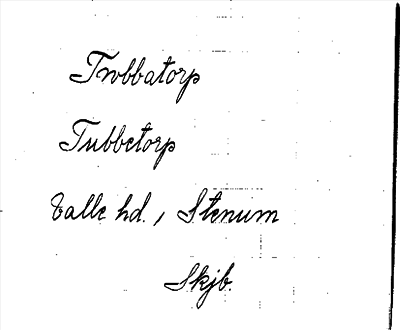 Tobbatorp
Tubbetorp
Valle hd., Stenum
Skjb.